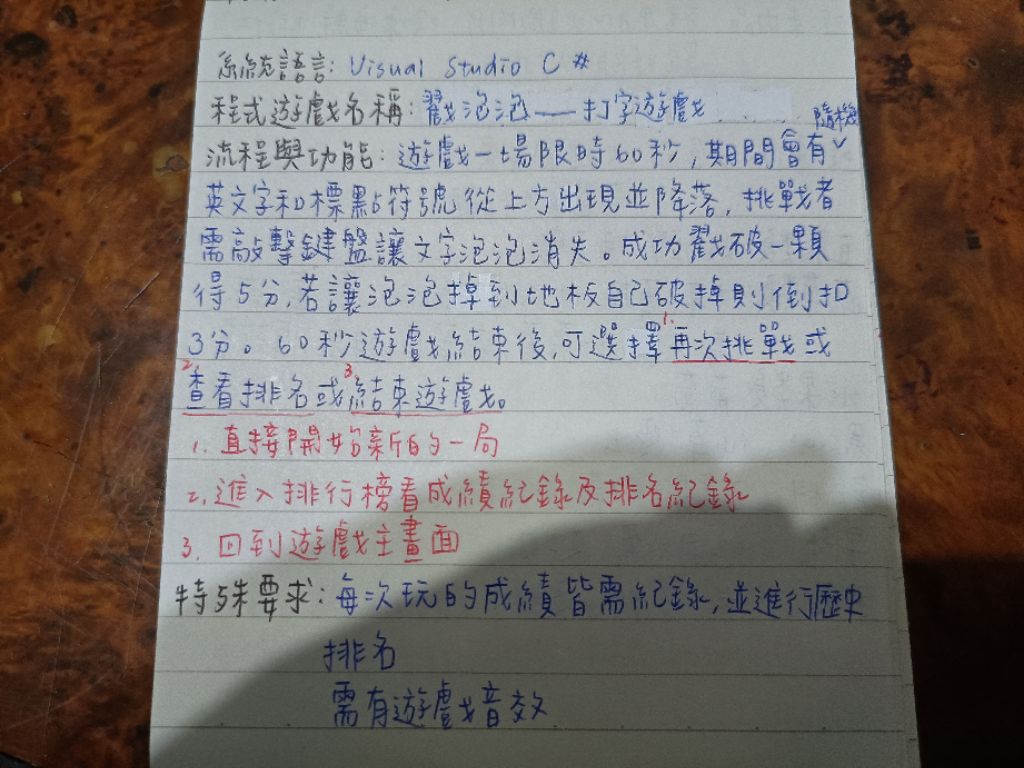 系統語言: Visual Studio C#
程式遊戲名稱: 戳泡泡——打字遊戲
隨機
流程與功能: 遊戲一場限時60秒, 期間會有
英文字和標點符號從上方出現並降落, 挑戰者
需敲擊鍵盤讓文字泡泡消失。成功戳破一顆
得5分, 若讓泡泡掉到地板自己破掉則倒扣
3分。60秒遊戲結束後, 可選擇1.再次挑戰或
2.查看排名或3.結束遊戲。
1. 直接開始新的一局
2. 進入排行榜看成績紀錄及排名紀錄
3. 回到遊戲主畫面
特殊要求: 每次玩的成績皆需紀錄, 並進行歷史
排名
需有遊戲音效